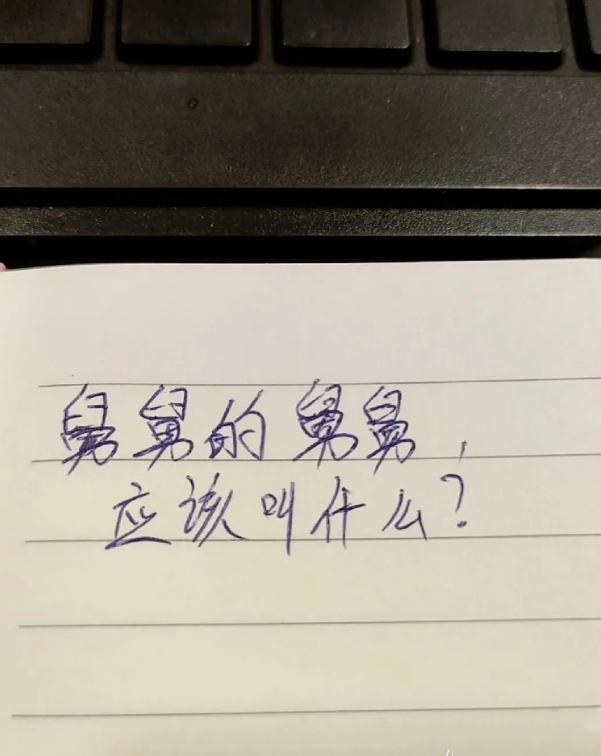 舅舅的舅舅，
应该叫什么？